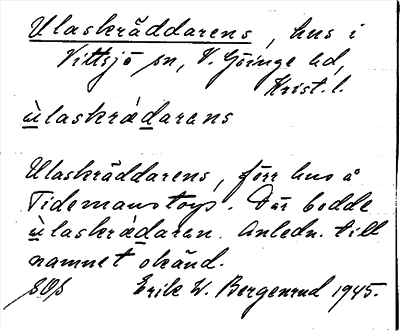 Ulaskräddarens, hus i
Vittsjö sn, V. Göinge hd,
Krist. l.
ùlaskrädarens
Ulaskräddarens, förr hus å
Tidemanstorp. Där bodde
ùlaskrädaren. Anledn. till
namnet okänd.
Erik W. Bergenrud 1945.